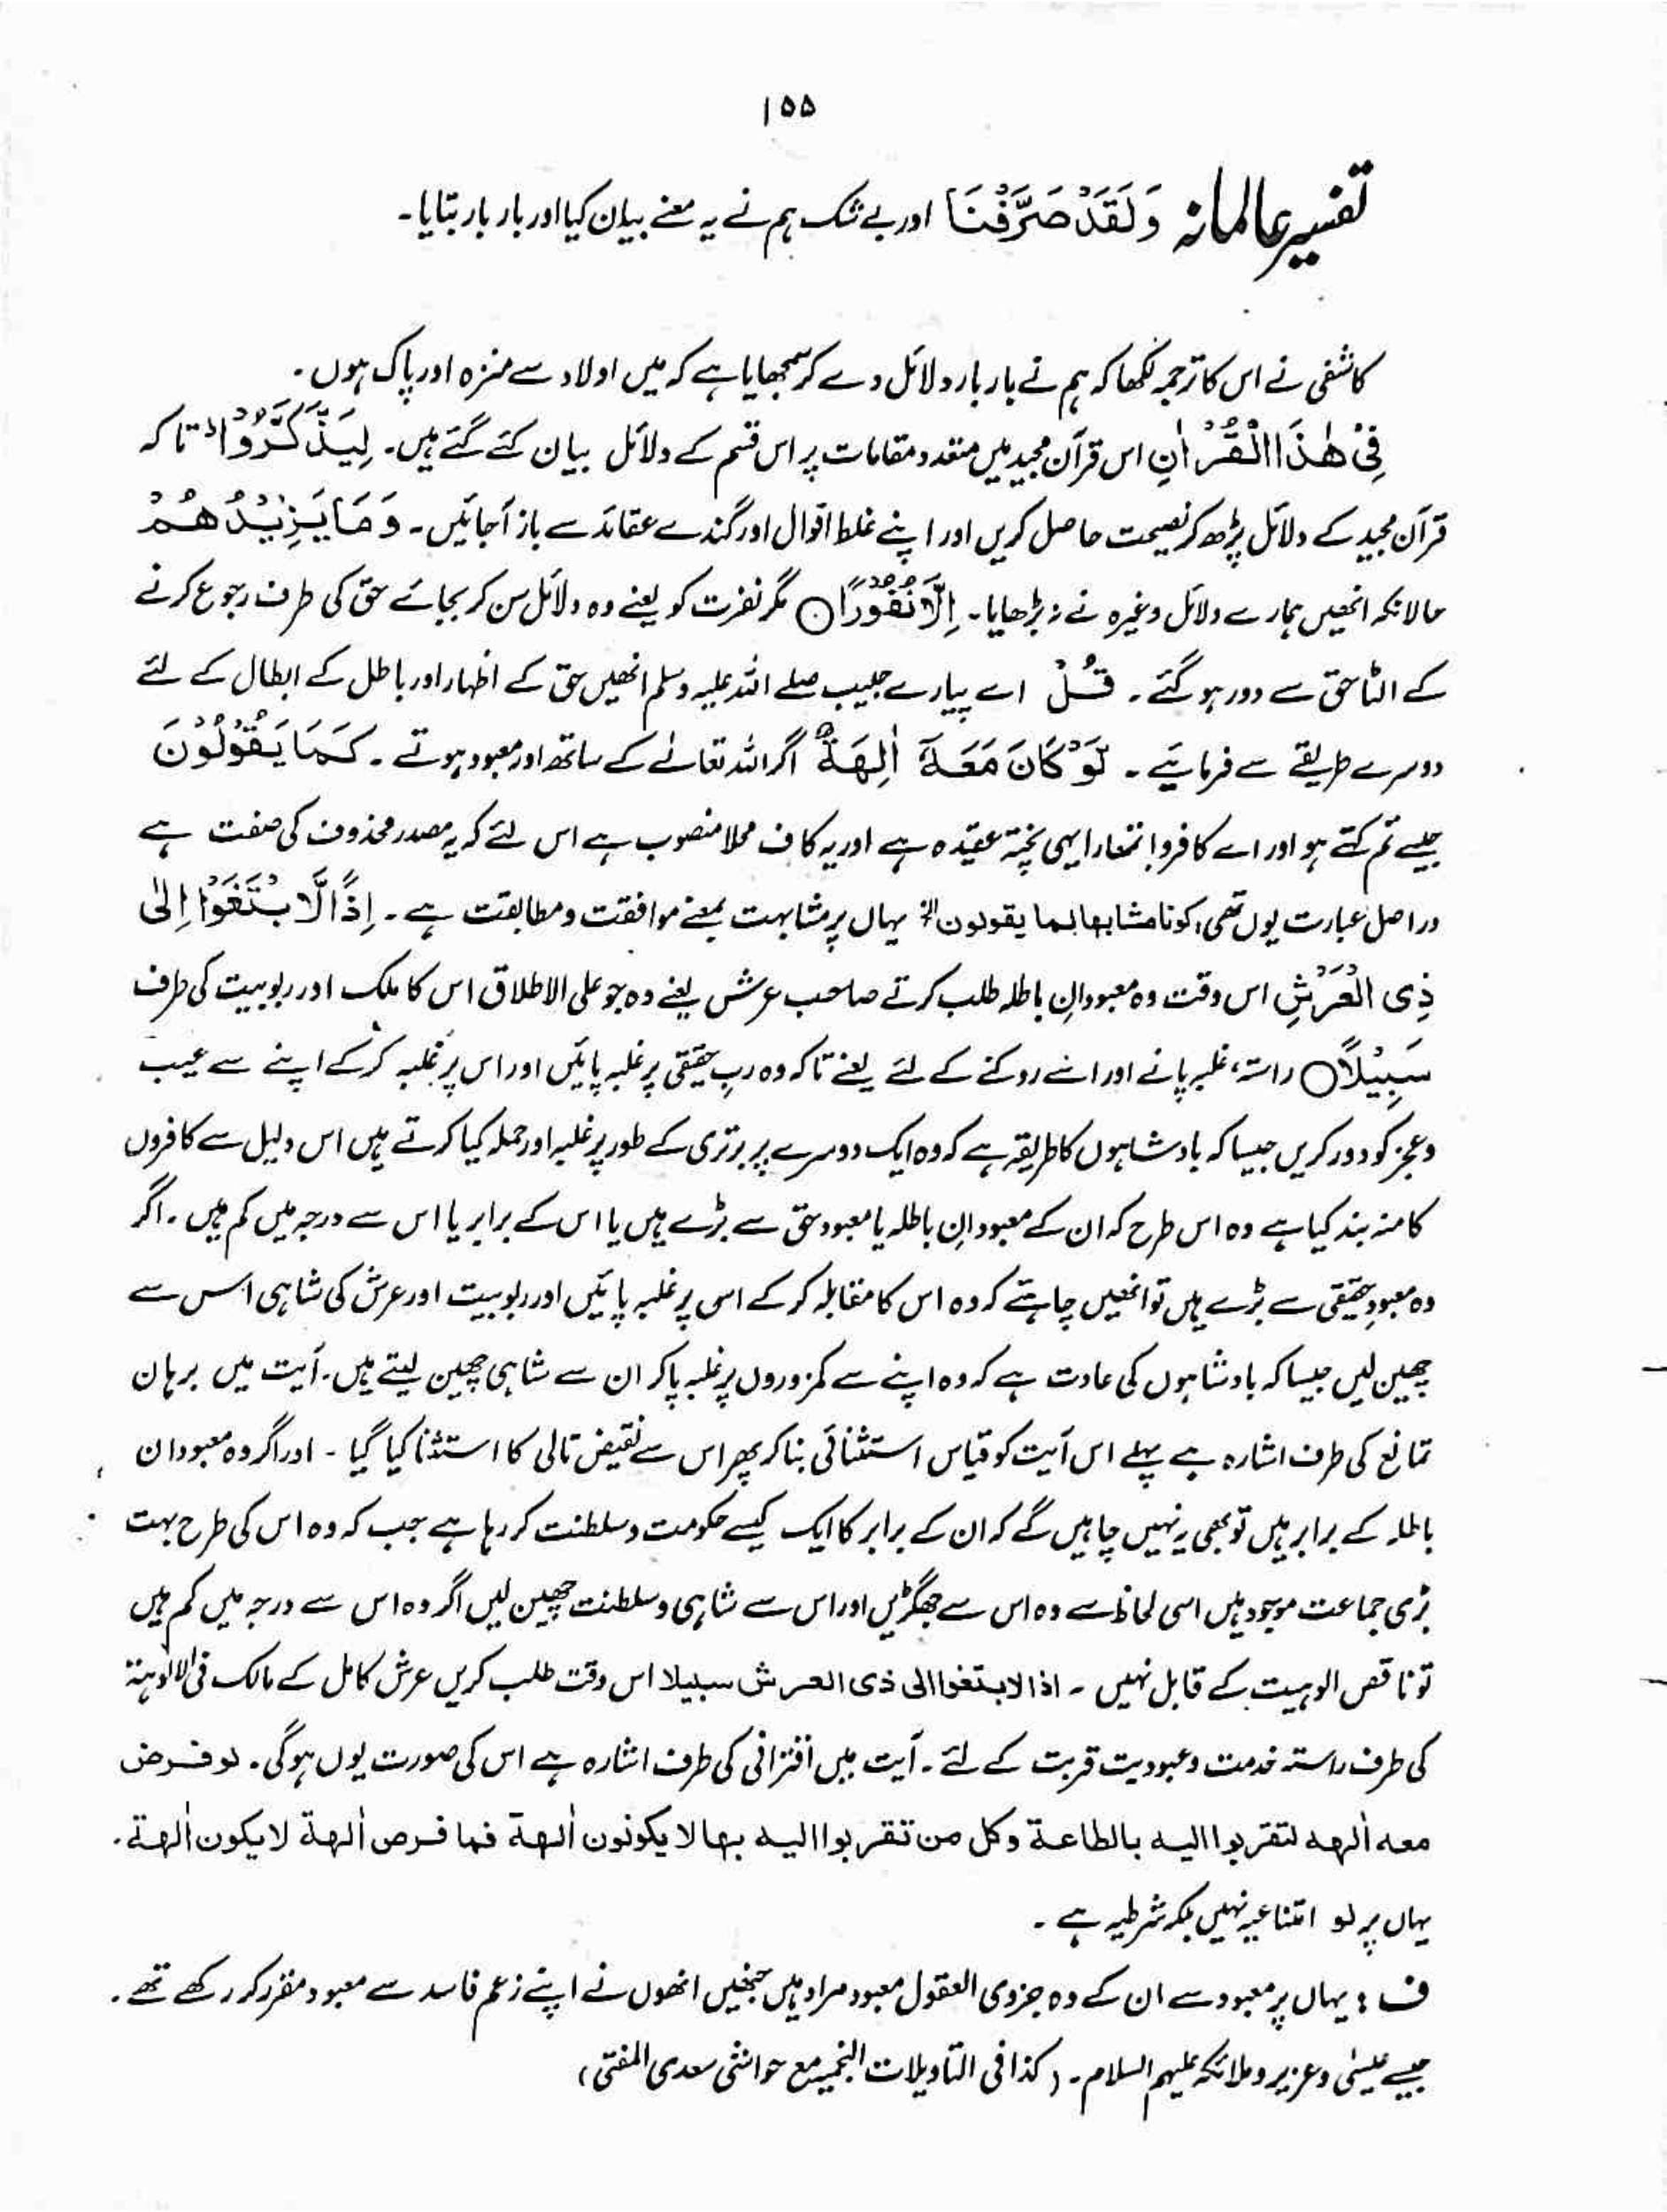 ۱۵۵
تفسیر عالمانہ وَلَقَدْ صَرَّفْنَا اور بے شک ہم نے یہ معنے بیان کیا اور بار بار بتایا۔
کاشفی نے اس کا ترجمہ لکھا کہ ہم نے بار بار دلائل دے کر سمجھایا ہے کہ میں اولاد سے منزہ اور پاک ہوں۔
فِیْ هٰذَا الْقُرْاٰنِ اس قرآن مجید میں متعدد مقامات پر اس قسم کے دلائل بیان کئے گئے ہیں۔ لِیَذَّكَّرُوْا تاکہ
قرآن مجید کے دلائل پڑھ کر نصیحت حاصل کریں اور اپنے غلط اقوال اور گندے عقائد سے باز آجائیں۔ وَمَا یَزِیْدُهُمْ
حالانکہ انھیں ہمارے دلائل وغیرہ نے نہ بڑھایا۔ اِلَّا نُفُوْرًا○ مگر نفرت کو یعنے وہ دلائل سن کر بجائے حق کی طرف رجوع کرنے
کے الٹا حق سے دور ہو گئے۔ قُلْ اے پیارے حبیب صلے اللہ علیہ وسلم انھیں حق کے اظہار اور باطل کے ابطال کے لئے
دوسرے طریقے سے فرمائیے۔ لَّوْ كَانَ مَعَهٗٓ اٰلِهَةٌ اگر اللہ تعالےٰ کے ساتھ اور معبود ہوتے۔ كَمَا یَقُوْلُوْنَ
جیسے تم کہتے ہو اور اے کافرو! تمھارا یہی پختہ عقیدہ ہے اور یہ کاف محلا منصوب ہے اس لئے کہ یہ مصدر محذوف کی صفت ہے
دراصل عبارت یوں تھی، کونا مشابھا لما یقولون الخ یہاں پر مشابہت بمعنے موافقت و مطابقت ہے۔ اِذًا لَّابْتَغَوْا اِلٰی
ذِی الْعَرْشِ اس وقت وہ معبودانِ باطلہ طلب کرتے صاحب عرش یعنے وہ جو علی الاطلاق اس کا ملک اور ربوبیت کی طرف
سَبِیْلًا○ راستہ، غلبہ پانے اور اسے روکنے کے لئے یعنے تاکہ وہ ربِ حقیقی پر غلبہ پائیں اور اس پر غلبہ کر کے اپنے سے عیب
و عجز کو دور کریں جیسا کہ بادشاہوں کا طریقہ ہے کہ وہ ایک دوسرے پر برتری کے طور پر غلبہ اور حملہ کیا کرتے ہیں اس دلیل سے کافروں
کا منہ بند کیا ہے وہ اس طرح کہ ان کے معبودانِ باطلہ یا معبود حق سے بڑے ہیں یا اس کے برابر یا اس سے درجہ میں کم ہیں۔ اگر
وہ معبودِ حقیقی سے بڑے ہیں تو انھیں چاہتے کہ وہ اس کا مقابلہ کر کے اسی پر غلبہ پائیں اور ربوبیت اور عرش کی شاہی اس سے
چھین لیں جیسا کہ بادشاہوں کی عادت ہے کہ وہ اپنے سے کمزوروں پر غلبہ پا کر ان سے شاہی چھین لیتے ہیں۔ آیت میں برہان
تمانع کی طرف اشارہ ہے پہلے اس آیت کو قیاس استثنائی بنا کر پھر اس سے نقیض تالی کا استثنا کیا گیا۔ اور اگر وہ معبودان
باطلہ کے برابر ہیں تو بھی یہ نہیں چاہیں گے کہ ان کے برابر کا ایک کیسے حکومت و سلطنت کر رہا ہے جب کہ وہ اس کی طرح بہت
بڑی جماعت موجود ہیں اسی لحاظ سے وہ اس سے جھگڑیں اور اس سے شاہی و سلطنت چھین لیں اگر وہ اس سے درجہ میں کم ہیں
تو ناقص الوہیت کے قابل نہیں۔ اذا لابتغوا الی ذی العرش سبیلا اس وقت طلب کریں عرش کامل کے مالک فی الالوہیۃ
کی طرف راستہ خدمت و عبودیت قربت کے لئے۔ آیت میں اقترانی کی طرف اشارہ ہے اس کی صورت یوں ہوگی۔ لو فرض
معه اٰلهه لتقربوا الیه بالطاعة وکل من تقربوا الیه بها لا یکونون اٰلهة فما فرص اٰلهة لا یکون اٰلهة۔
یہاں پر لو امتناعیہ نہیں بلکہ شرطیہ ہے۔
ف: یہاں پر معبود سے ان کے وہ جزوی العقول معبود مراد ہیں جنھیں انھوں نے اپنے زعم فاسد سے معبود مقرر کر رکھے تھے۔
جیسے عیسٰی و عزیر و ملائکہ علیہم السلام۔ (کذا فی التاویلات النجمیہ مع حواشی سعدی المفتی)